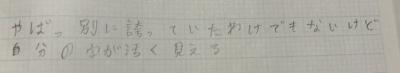 やばっ 別に誇っていたわけでもないけど
自分の字が汚く見える